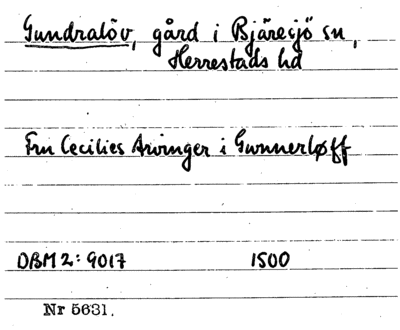 Gundralöv, gård i Bjäresjö sn,
Herrestads hd
Fru Cecilies Arvinger i Gunnerløff
DBM 2: 9017 1500
Nr 5631.